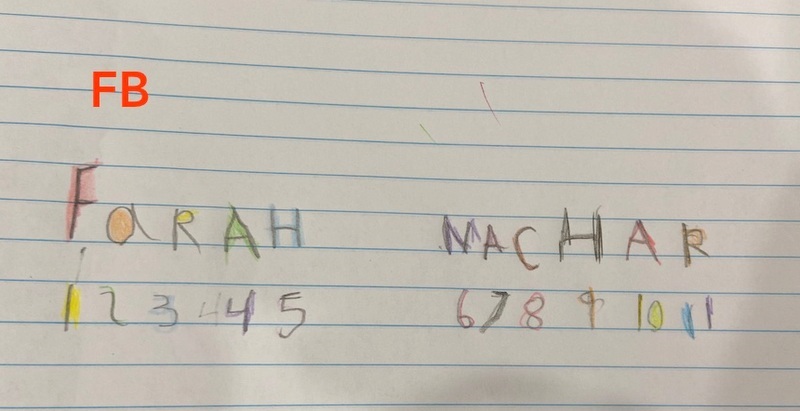 FB
FaRAH MACHAR
1 2 3 4 4 5 6 7 8 9 10 11